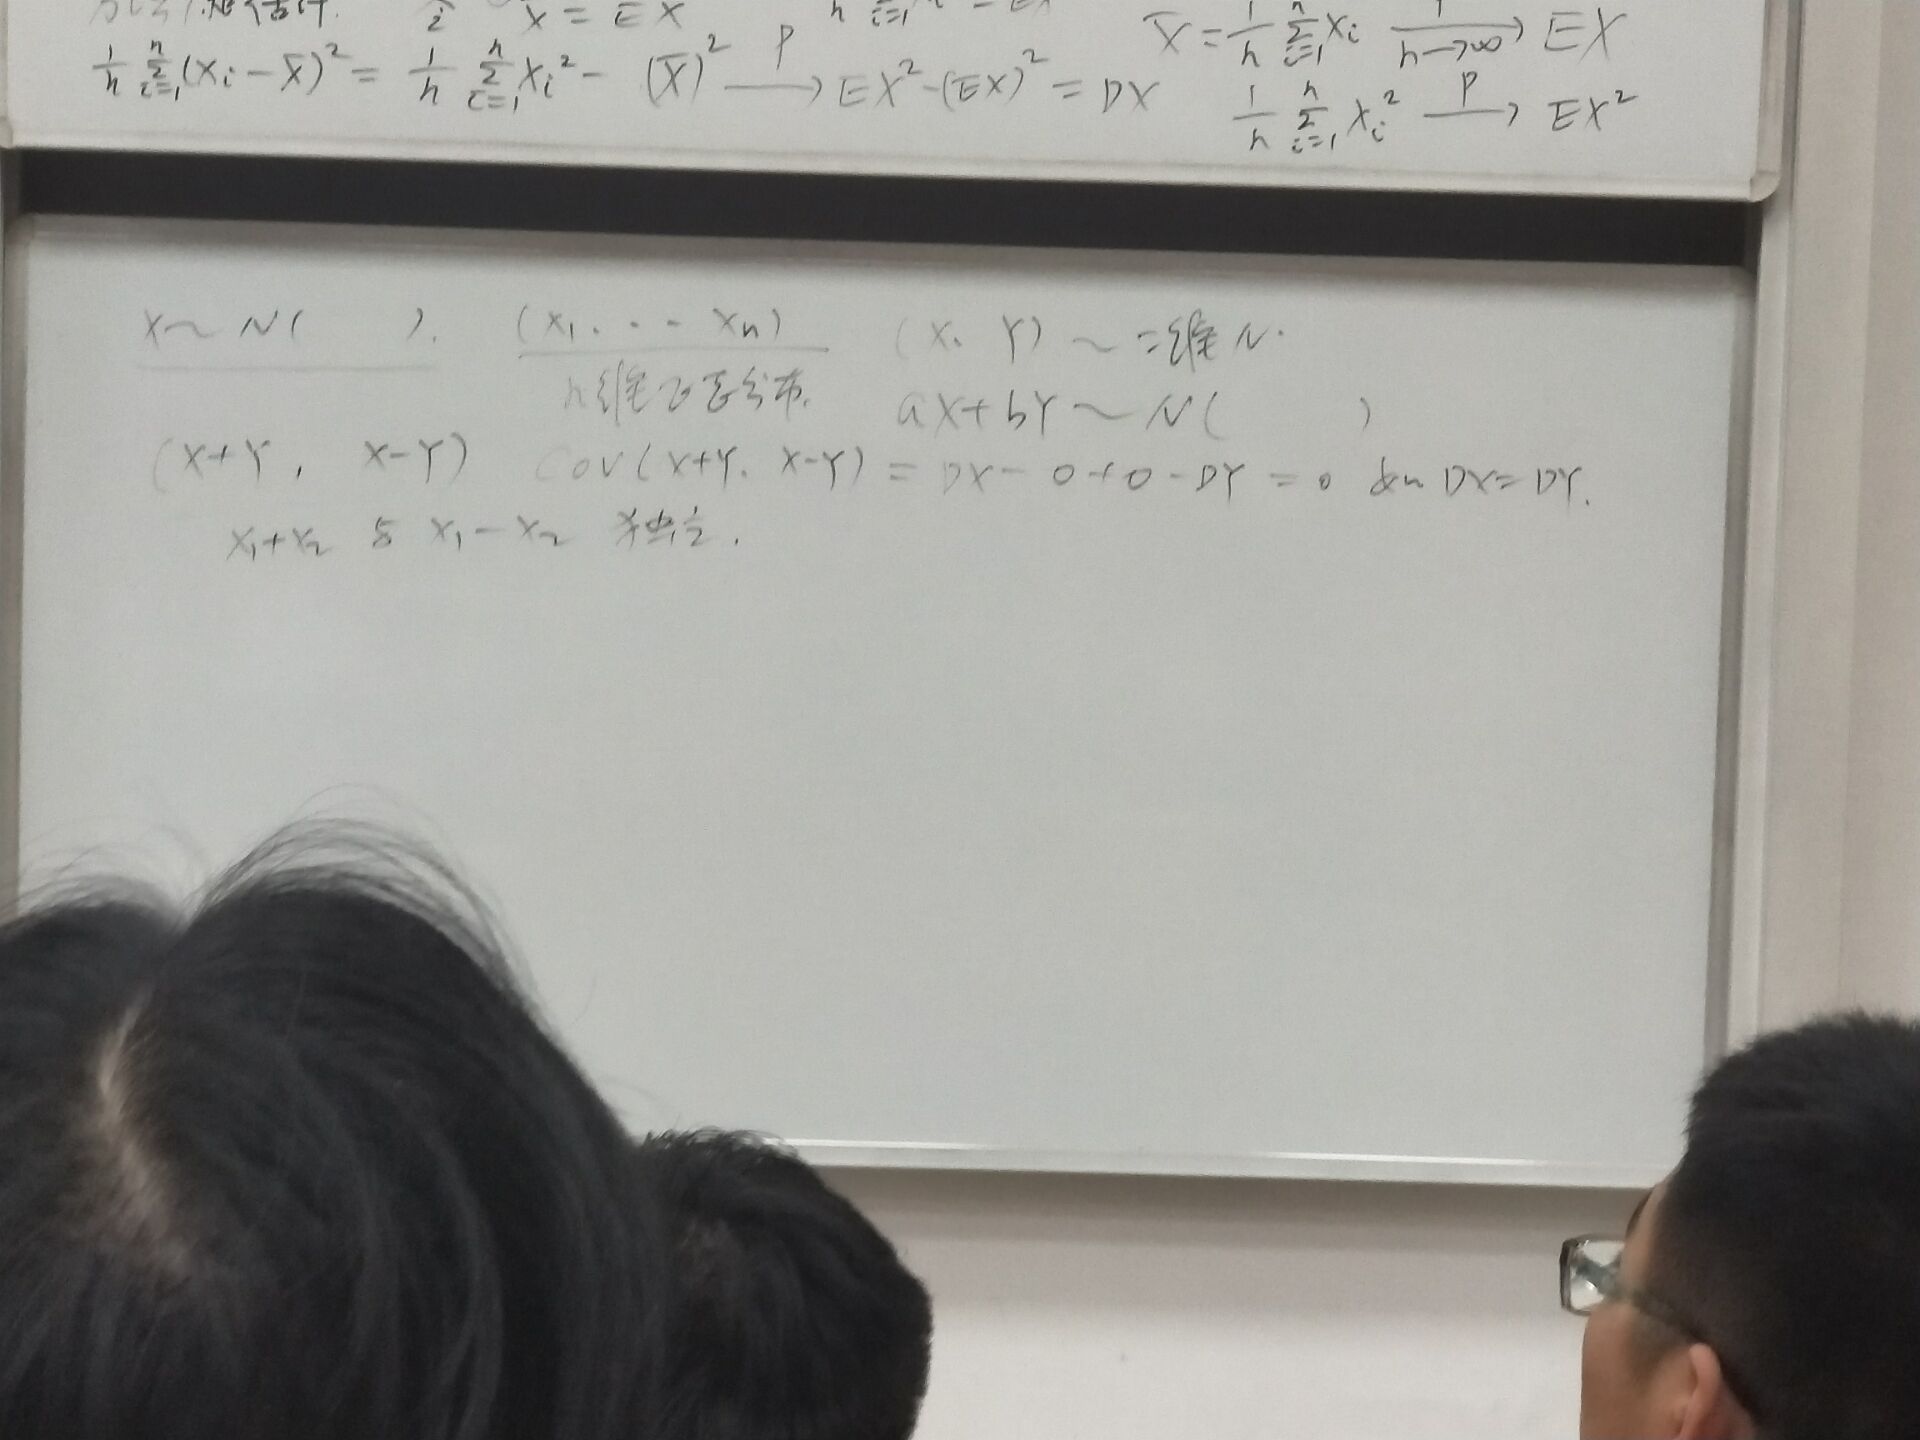 估计. X̄ = EX
X̄ = 1/n Σ_{i=1}^{n} X_i →_{n→∞} EX
1/n Σ_{i=1}^{n} (X_i - X̄)² = 1/n Σ_{i=1}^{n} X_i² - (X̄)² →^P EX² - (EX)² = DX
1/n Σ_{i=1}^{n} X_i² →^P EX²
X ~ N( ). (X₁, ··· X_n) (X, Y) ~ 二维N.
n维正态分布. aX+bY ~ N( )
(X+Y, X-Y) Cov(X+Y, X-Y) = DX - 0 + 0 - DY = 0 DX = DY.
X₁+X₂ 与 X₁-X₂ 独立.